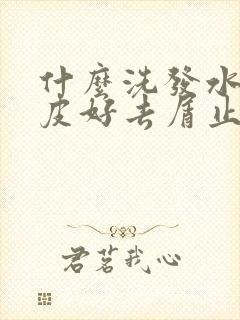 什麼洗發水
皮好去屑止
君茗我心